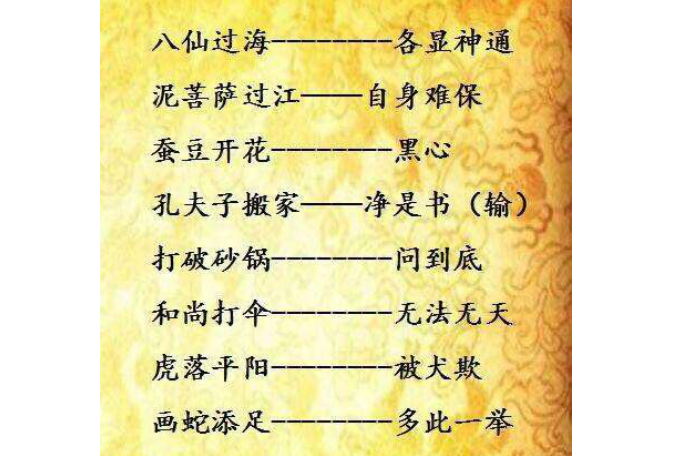 八仙过海--------各显神通
泥菩萨过江——自身难保
蚕豆开花--------黑心
孔夫子搬家——净是书（输）
打破砂锅--------问到底
和尚打伞--------无法无天
虎落平阳--------被犬欺
画蛇添足--------多此一举